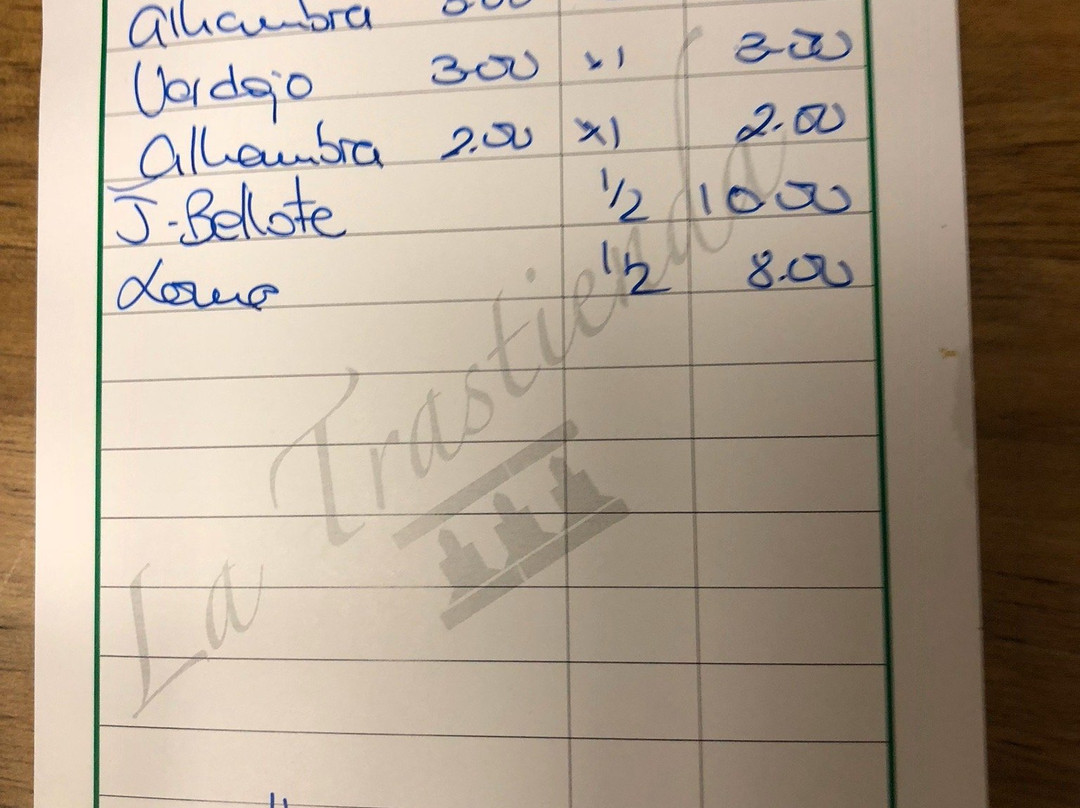 Alhambra
Verdejo 3.00 x1 3.00
Alhambra 2.00 x1 2.00
J-Bellote 1/2 10.00
Lomo 1/2 8.00
La Trastienda